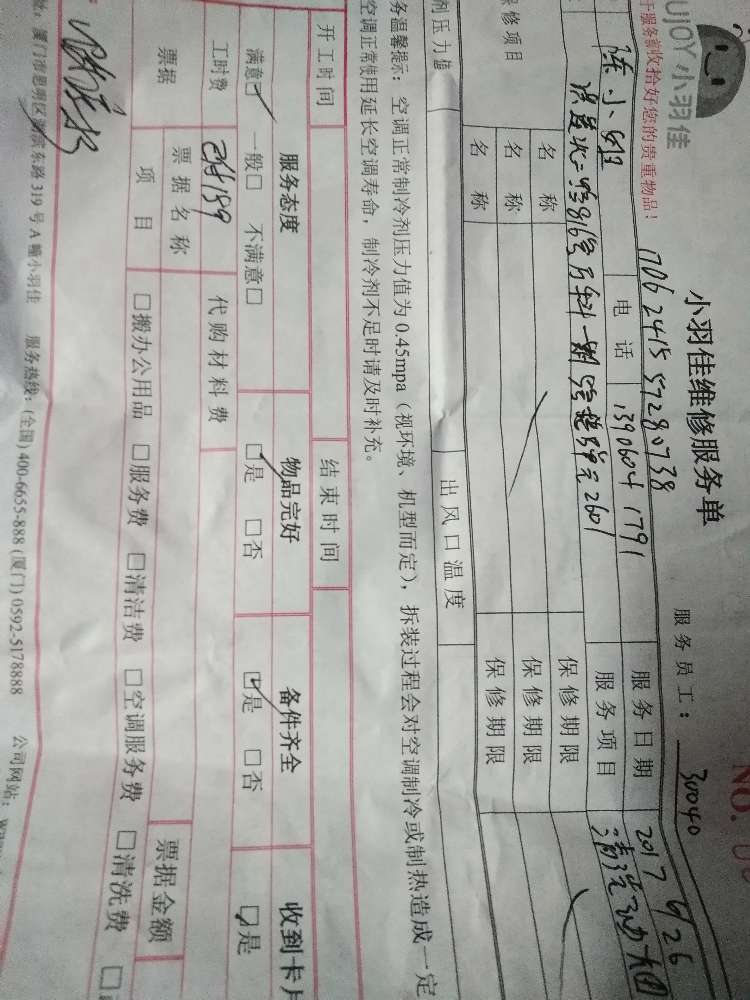 UJOY小羽佳
小羽佳维修服务单
NO.
服务前收拾好您的贵重物品！
1706 2415 57280738
服务员工：30040
陈小姐
电话
13906041791
服务日期
2017 6/26
服务项目
2601
保修项目
名称
保修期限
名称
保修期限
名称
保修期限
剂压力值
出风口温度
务温馨提示：空调正常制冷剂压力值为0.45mpa（视环境、机型而定），拆装过程会对空调制冷或制热造成一定
空调正常使用延长空调寿命，制冷剂不足时请及时补充。
开工时间
结束时间
服务态度
物品完好
备件齐全
收到卡片
满意□ 一般□ 不满意□
□是 □否
□是 □否
□是
工时费
189
代购材料费
票据
票据名称
票据金额
项目
□搬办公用品 □服务费 □清洁费 □空调服务费 □清洗费 □
址：厦门市思明区湖滨东路319号A幢小羽佳 服务热线：(全国) 400-6655-888 (厦门) 0592-5178888 公司网站：www.